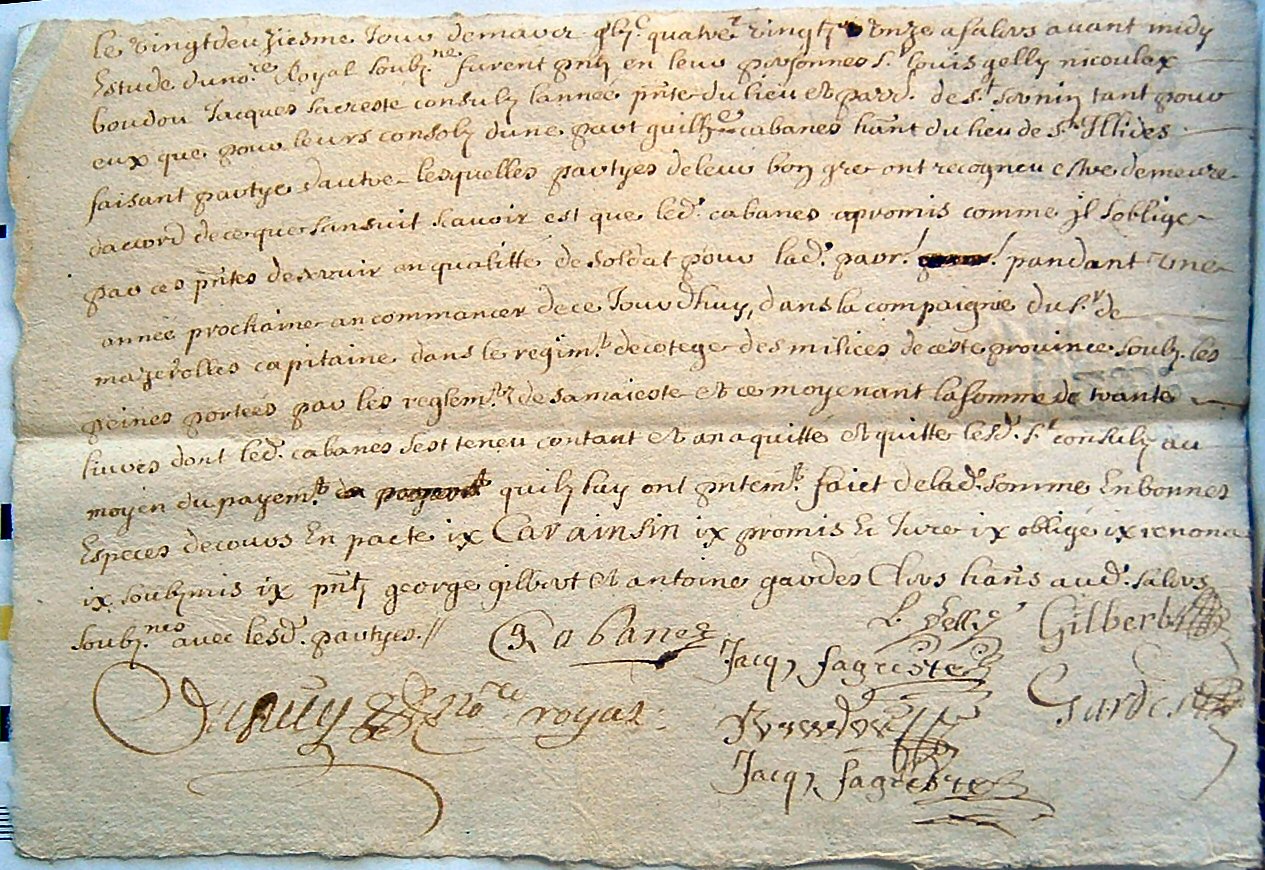 le vingtdeuziesme Jour de mars gbjc. quatre vingtz onze a salers avant midy
Estude du nore. Royal soubzne. furent pntz en leur personnes sr. louis gelly nicoulex
boudou Jacques sacreste consulz lannée pnte du lieu et parr. de st sernin tant pour
eux que pour leurs consolz dune part guilhe cabanes hant du lieu de st Illides
faisant partye dautre lesquelles partyes de leur bon gre ont recogneu estre demeure
daccord de ce que sansuit scavoir est que led. cabanes a promis comme jl soblige
par ces pntes de servir en qualitte de soldat pour lad. parr. pandant une
année prochaine an commancer de ce Jourdhuy, dans la compaignie du sr. de
mazerolles capitaine dans le regimt. de cotege des milices de ceste province soubz les
peines portées par les reglemtz de sa maieste et ce moyenant la somme de trante
livres dont led. cabanes sest teneu contant et an aquitté et quitte lesd. srs consulz au
moyen du payemt. quilz luy ont pntemt. faict de lad. somme En bonnes
Especes de cours En pacte ix Car ainsin ix promis Et Jure ix obligé ix renoncé
ix soubzmis ix pntz george gilbert et antoine gardes Clers hans aud. salers
soubznes avec lesd. partyes. //
Cabanes
L Gelly
Gilbert
Jacq. sagreste
Gardes
Dupuy nore royal
Boudou
Jacq. sagreste